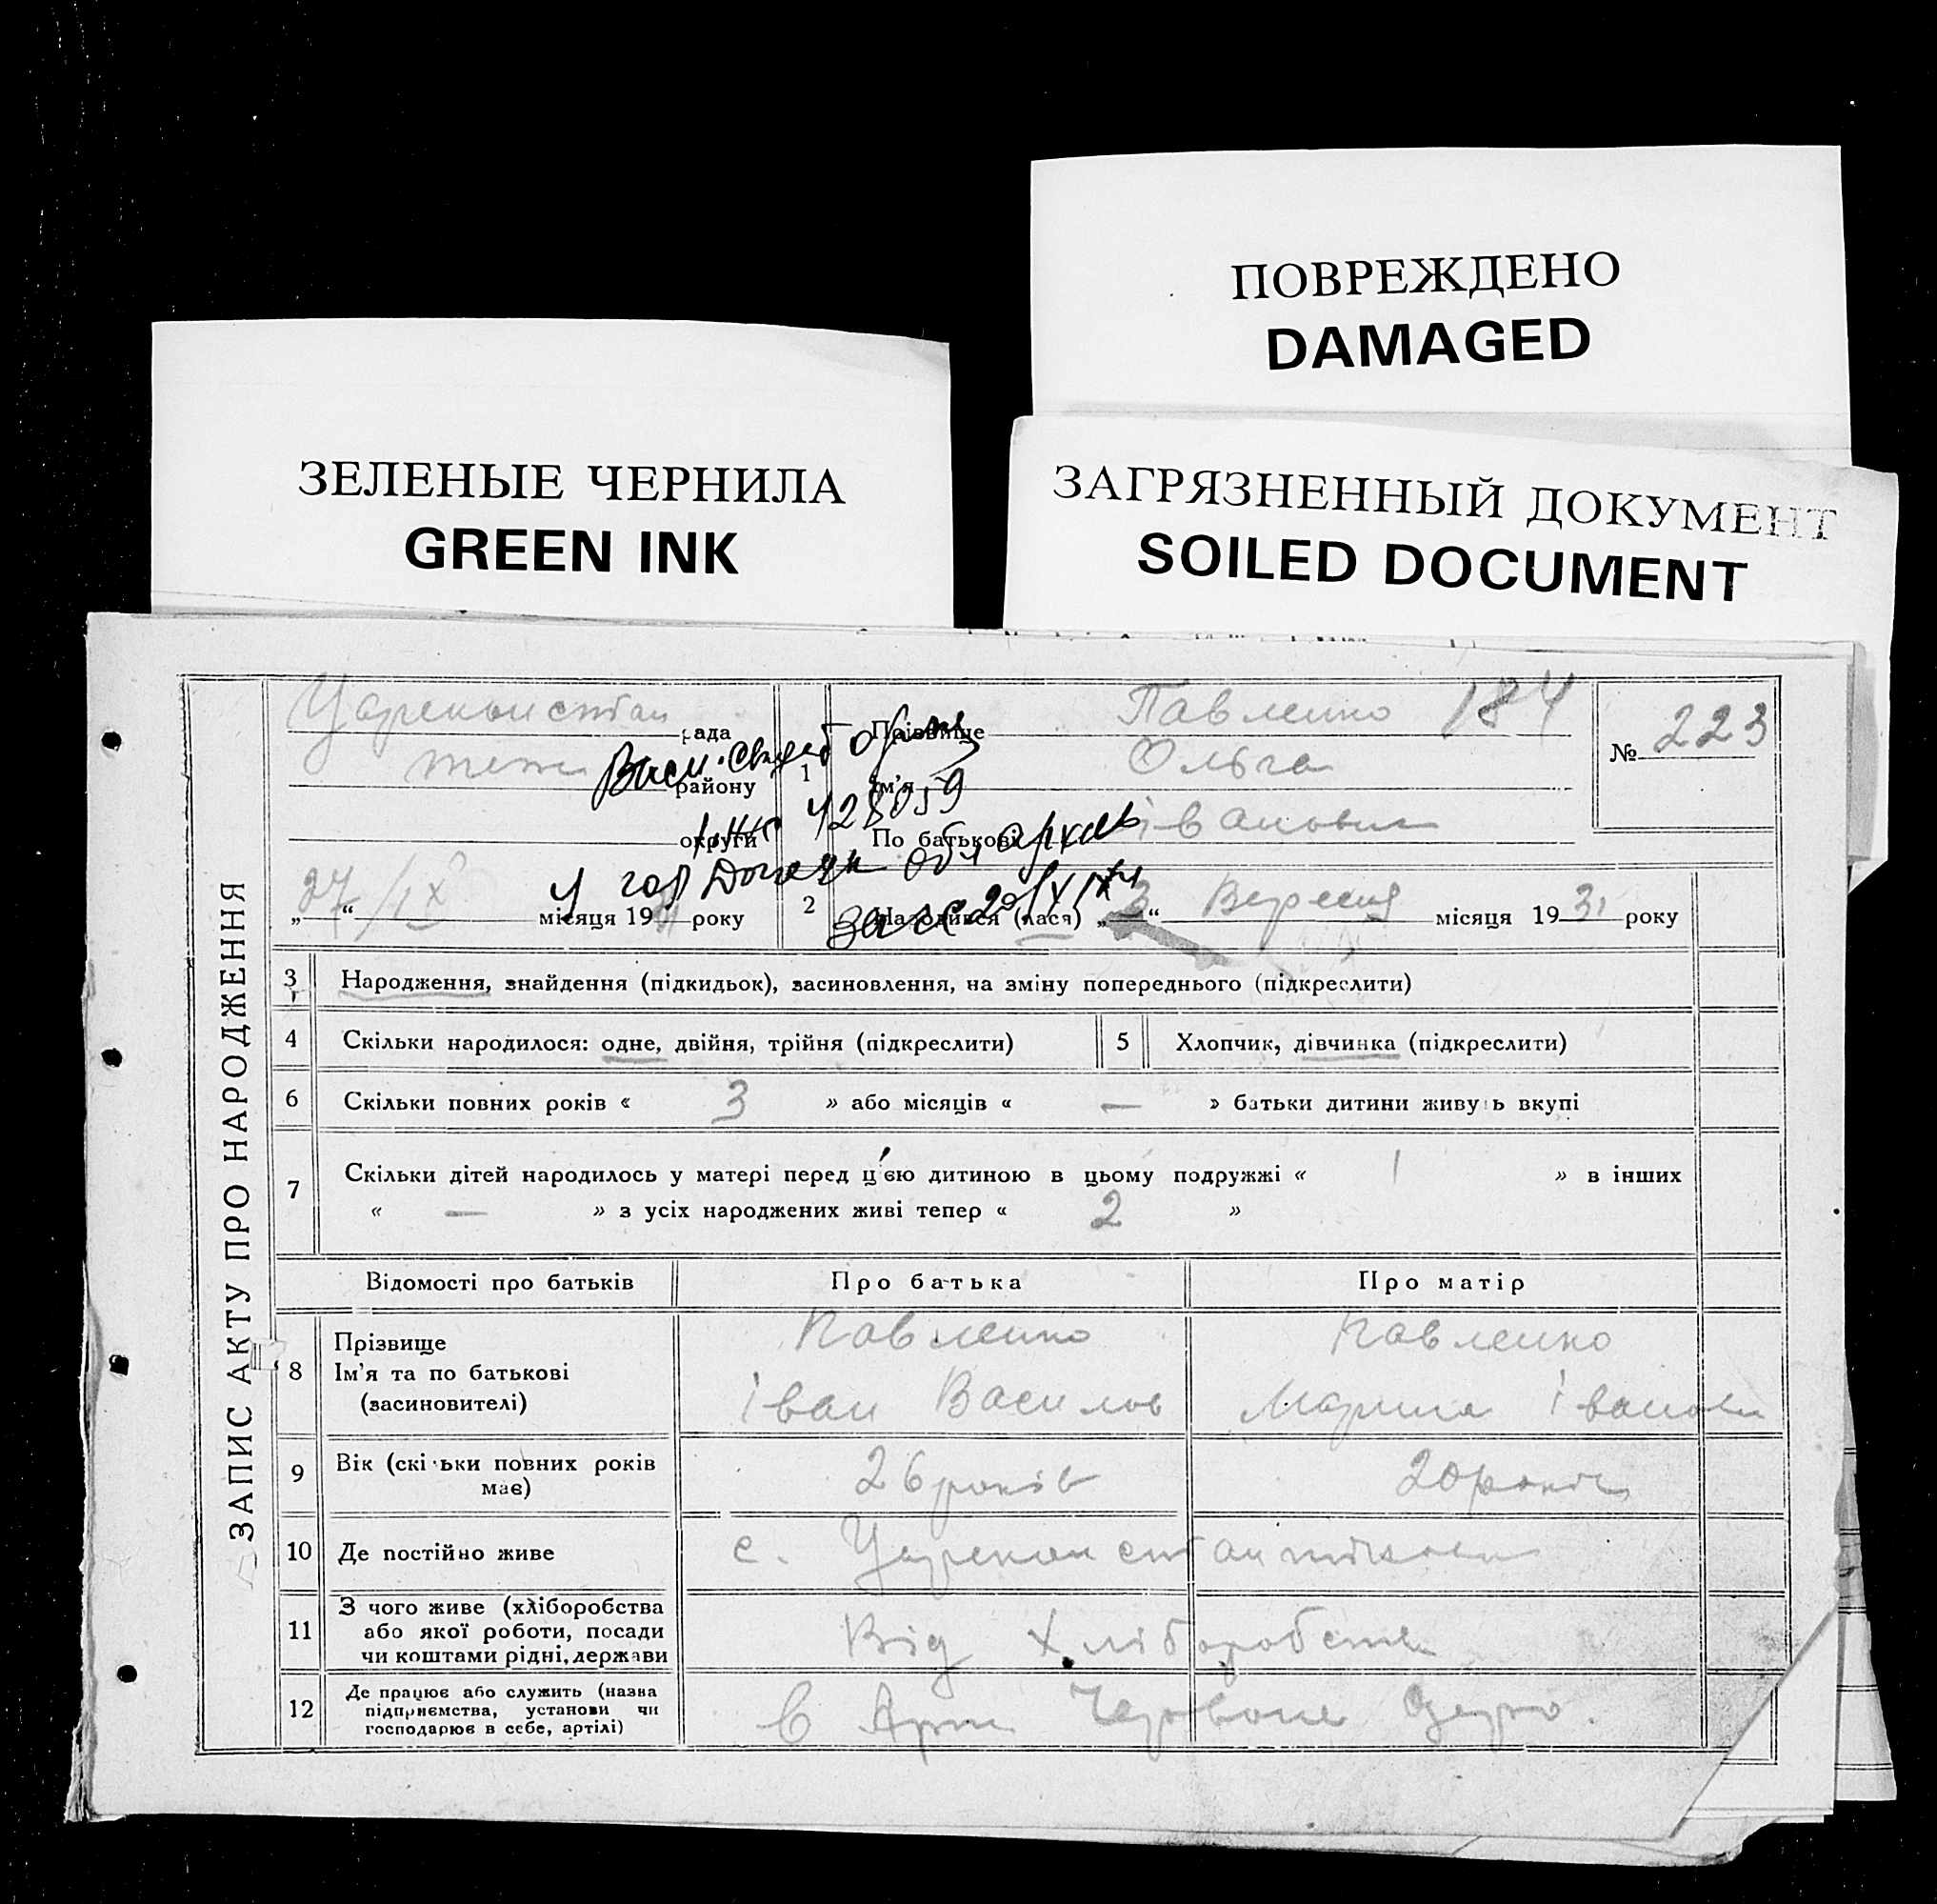 ПОВРЕЖДЕНО
DAMAGED
ЗЕЛЕНЫЕ ЧЕРНИЛА
GREEN INK
ЗАГРЯЗНЕННЫЙ ДОКУМЕНТ
SOILED DOCUMENT
ЗАПИС АКТУ ПРО НАРОДЖЕННЯ
рада
району
округи
27 / IX місяця 1931 року
1 Прізвище Павленко 184
Ім'я Ольга
По батькові
№ 223
428059
2 Народився (лася) „3“ Вересня місяця 1931 року
3 Народження, знайдення (підкидьок), засиновлення, на зміну попереднього (підкреслити)
4 Скільки народилося: одне, двійня, трійня (підкреслити) 5 Хлопчик, дівчинка (підкреслити)
6 Скільки повних років « 3 » або місяців « — » батьки дитини живуть вкупі
7 Скільки дітей народилось у матері перед ц'єю дитиною в цьому подружжі « 1 » в інших
« — » з усіх народжених живі тепер « 2 »
Відомості про батьків Про батька Про матір
8 Прізвище Павленко Павленко
Ім'я та по батькові
(засиновителі) Іван Васильов
9 Вік (скільки повних років має) 26 років 20 років
10 Де постійно живе с.
11 З чого живе (хліборобства
або якої роботи, посади
чи коштами рідні, держави Від Хліборобства
12 Де працює або служить (назва
підприємства, установи чи
господарює в себе, артілі) в Арт Червоне